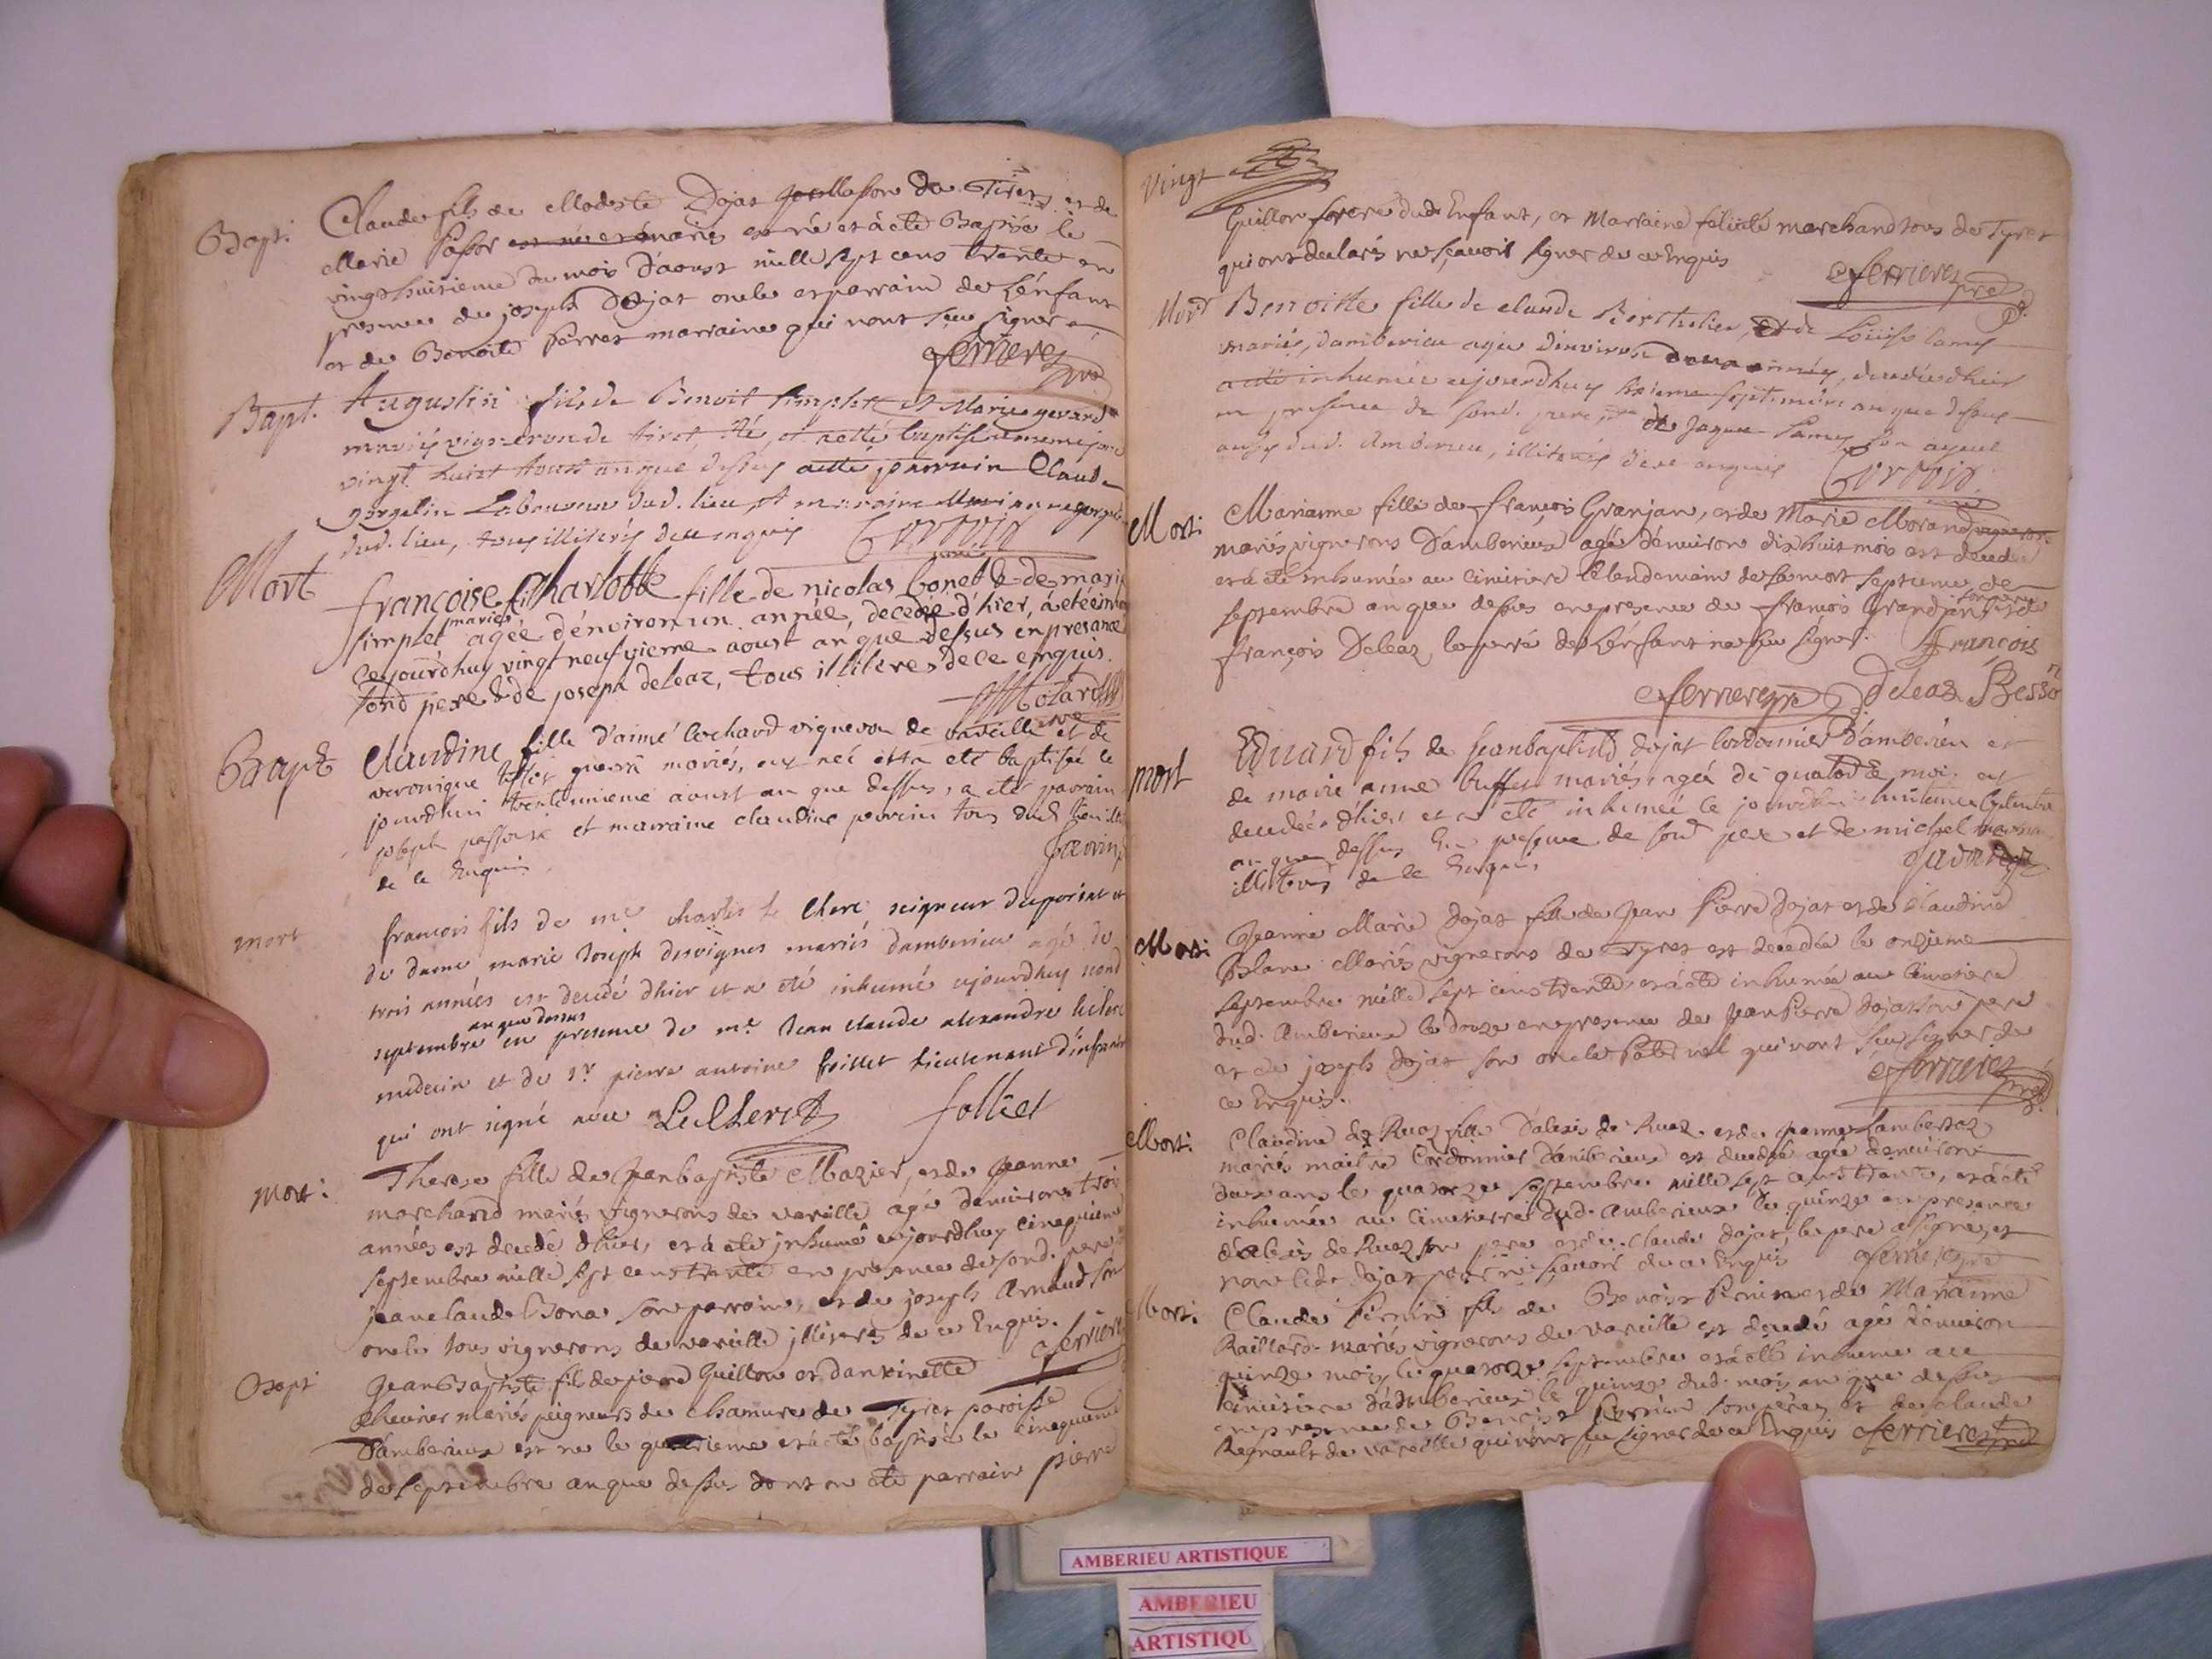 Bapt.
Claude fils de Modeste Dojat du Tiret et de
Marie est né et a eté Baptisé le
vingt huitieme du mois d'aoust mille sept cens trente en
presence de joseph Dojat oncle et parrain de L'enfant
et de Benoite Perret marraine qui n'ont sceu signer
ferrieres pre
Bapt.
Augustin fils de Benoit Simplet et Marie gerard
mariés vignerons de tiret né, et a eté baptisé mesme jour
vingt huict Aoust an que dessus a eté parrain Claude
Laboureur dud. lieu, et marraine
dud. lieu, tous illiterés de ce enquis
Mort
françoise Charlotte fille de nicolas bonet & de marie
simplet mariés agée d'environ un année, decedée d'hier, a eté
cejourd'huy vingt neufvieme aoust an que dessus en presance
sond pere & de joseph deleaz, tous illiteres de ce enquis.
Bapt
Claudine fille d'aimé Cochard vigneron de vareille et de
veronique mariés, est née et a eté baptisée le
jourdhui trenteunieme aoust an que dessus, a eté parrain
joseph et marraine claudine perrin tous dud.
de ce Enquis
mort
francois fils de mr charles le Clerc seigneur duporiat et
de dame marie Joseph desvignes mariés damberieu agé de
trois années est decedé dhier et a eté inhumé ajourdhuy second
septembre an que dessus en presence de mr Jean claude alexandre leclerc
medecin et de sr pierre antoine follliet lieutenant d'infanterie
qui ont signé avec LeClerc folliet
mort:
Therese fille de Jeanbaptiste Mazier, et de Jeanne
marchand mariés vignerons de vareille agée denviron trois
années est decedé dhier, et a eté inhumé ajourdhuy cinquieme
septembre mille sept cens trente en presence de sond. pere
jeanclaude Bona son parrain, et de joseph Arnaud son
oncle tous vignerons de vareille illiterés de ce Enquis. ferrieres
Bapt
Jean Baptiste fils de pierre Guillon et dantoinette
Chevrier mariés peigneurs de chanvre de Tyret paroisse
D'amberieux est né le quatrieme et a eté baptisé le cinquieme
de septembre an que dessus dont a eté parrain pierre
vingt
Guillon frere dud. Enfant, et Marraine felicité marchand tous de Tyret
qui ont declarés ne sçavoir signer de ce Enquis
ferrieres pre
Mort
Benoitte fille de claude Berthelier, et de Loüise lamy
mariés, damberieu agée d'environ deux années, decedée dhier
a eté inhumée ajourdhuy septembre an que dessus
en presence de sond. pere, de Jaque Lamy son ayeul
aussy dud. Amberieu, illiterés de ce enquis
Mort:
Marianne fille de françois Granjan, et de Marie Morand
mariés vignerons D'amberieux agée d'environ dix huit mois est decedée
et a eté inhumée au cimetiere le lendemain de sa mort septieme de
septembre an que dessus en presence de françois Grandjan son pere et de
françois Deleaz, le pere de L'enfant n'a sceu signer. françois
ferrieres pre deleaz Besson
mort
Eduard fils de jeanbaptiste dojat Cordonnier D'amberieu et
de marie anne buffet mariés, agéa de quatorze mois est
decedée d'hier et a eté inhumée le jourdhui huitieme septembre
an que dessus En presence de sond pere et de michel
illiterés de ce Enquis
Mort:
Jeanne Marie Dojat fille de Jean Pierre Dojat et de Claudine
Blanc Mariés vignerons de Tyret est decedée le onzieme
septembre mille sept cens trente et a eté inhumée au Cimetiere
dud. Amberieux le douze en presence de Jean Pierre Dojat son pere
et de joseph Dojat son oncle Paternel qui n'ont sceu signer de
ce Enquis.
ferrieres pre
Mort:
Claudine de Ruaz fille D'alexis de Ruaz et de jeanne Lambertaz
mariés maitre Cordonnier D'amberieux est decedée agée d'environ
deux ans le quatorze septembre mille sept cens trente, et a eté
inhumée au Cimetierre dud. Amberieux le quinze en presence
d'alexis de Ruaz son pere et de Claude Dojat, le pere a signé, et
non led. Dojat pour ne sçavoir de ce Enquis ferrieres pre
Mort:
Claude Perrin fils de Benoist Perrin et de Marianne
Raillard mariés vignerons de vareille est decedé agé d'environ
quinze mois le quatorze septembre et a eté inhumé au
cimetiere D'amberieux le quinze dud. mois an que dessus
en presence de Benoist Perrin son pere, et de claude
Regnault de vareille qui n'ont sceu signer de ce Enquis ferrieres pre
AMBERIEU ARTISTIQUE
AMBERIEU
ARTISTIQU